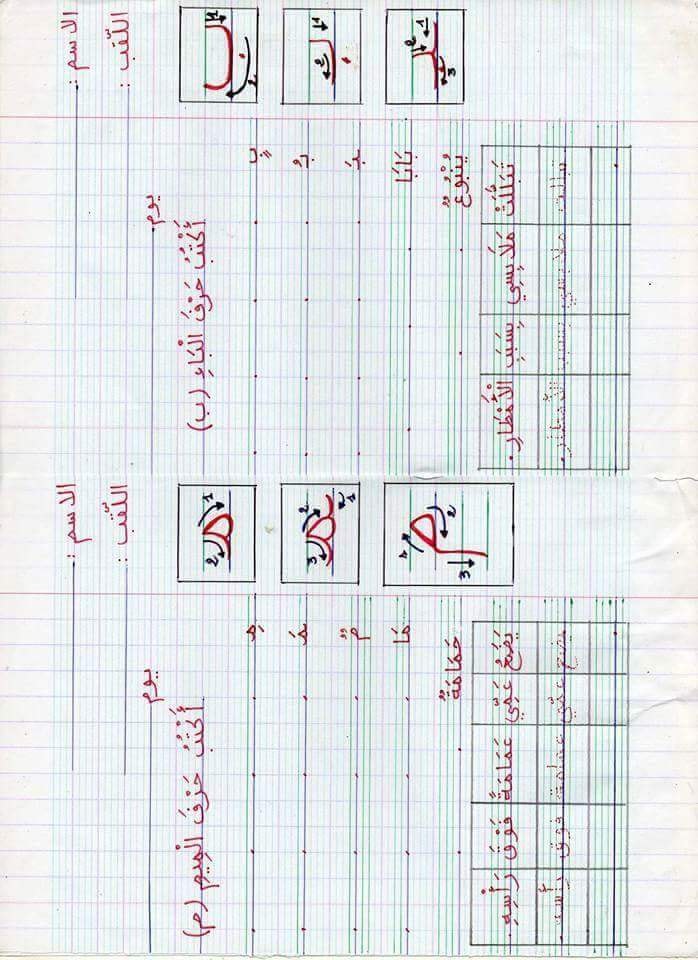 الاسم :
اللّقب :
يوم
أَكْتُبُ حَرْفَ الْبَاءِ (ب)
1 2
1 2
1 2 3
بٍ
بُ
بَ
بَابَا
يَنْبُوعٌ
تَبَلَّلَتْ مَلَابِسِي بِسَبَبِ الْأَمْطَارِ.
تبللت ملابسي بسبب الأمطار.
الاسم :
اللّقب :
يوم
أَكْتُبُ حَرْفَ الْمِيمِ (م)
1 2
1 2 3
1 2 3
مِ
مَ
مٌ
مَا
حَمَامَةٌ
يَضَعُ عَمِّي عَمَامَةً فَوْقَ رَأْسِهِ.
يضع عمّي عمامة فوق رأسه.